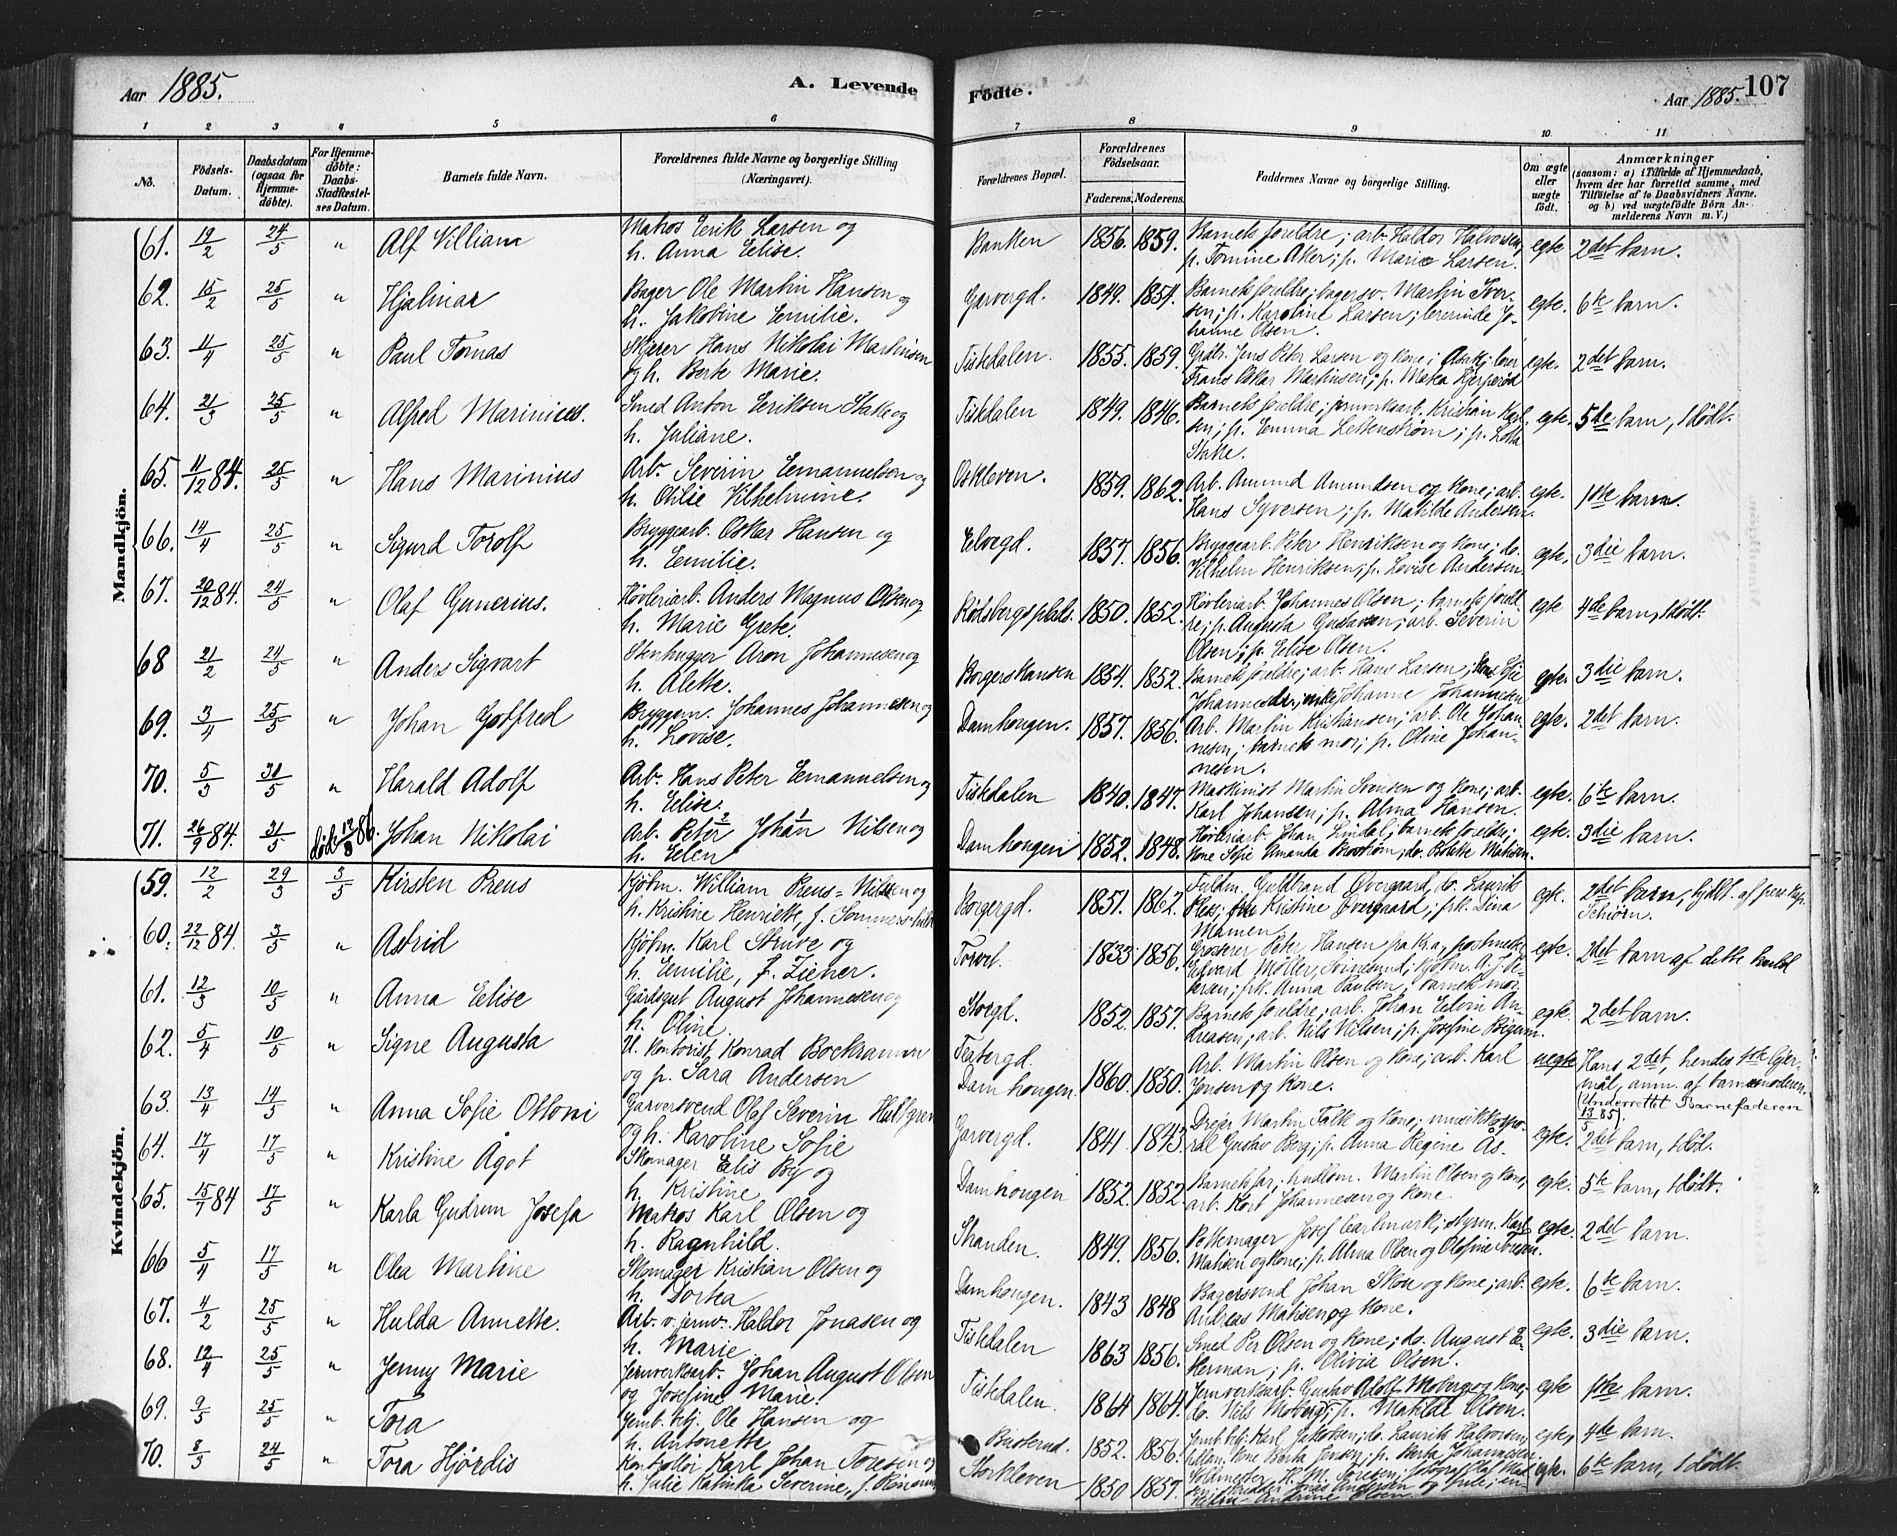 Aar 1885.
A. Levende
Födte.
Aar 1885.
107
1 2 3 4 5 6 7 8 9 10 11
No.
Födsels-Datum.
Daabsdatum (ogsaa for Hjemme-döbte).
For Hjemme-döbte: Daabs-Stadfæstel-ses Datum.
Barnets fulde Navn.
Forældrenes fulde Navne og borgerlige Stilling (Næringsvei).
Forældrenes Bopæl.
Forældrenes Födselsaar.
Faderens. Moderens.
Faddernes Navne og borgerlige Stilling.
Om ægte eller uægte födt.
Anmærkninger
(saasom: a) i Tilfælde af Hjemmedaab, hvem der har forrettet samme, med Tilföielse af to Daabsvidners Navne. og b) ved uægtefödte Börn An-melderens Navn m. V.)
Mandkjön.
61. 19/2 24/5 " Alf Villiam Matros Eerik Larsen og h. Anna Eelise. Banken 1856. 1859. Barnets foreldre; arb. Haldor Halvorsen, p. Tomine Aker; p. Marie Larsen. egte 2det barn.
62. 15/2 25/5 " Hjalmar Bager Ole Martin Hansen og h. Jakobine Eemilie. Garvergd. 1849. 1854. Barnets foreldre; bagersv. Martin Iversen; p. Karoline Larsen; lererinde Johanne Olsen. egte. 6te barn.
63. 11/4 25/5 " Paul Tomas Skjerer Hans Nikolai Martinsen og h. Berte Marie. Tistedalen. 1855. 1859. Grdbr. Jens Peter Larsen og kone; Frans Oskar Martinsen; p. egte. 2det barn.
64. 21/3 25/5 " Alfred Marinius. Smed Anton Eeriksen Stake og h. Juliane. Tistedalen 1849. 1846. Barnets foreldre; jernverksarb. Kristian Karlsen; p. Emma Lettenstrøm; p. Lotta Stake. egte. 5te barn, 1 dödt.
65. 11/12 84. 25/5 " Hans Marinius Arb. Severin Eemanuelsen og h. Otilie Vilhelmine. Oskleven. 1859. 1862. Arb. Amund Amundsen og kone; arb. Hans Syversen; p. Matilde Andersen. egte. 1ste barn.
66. 14/4 25/5 " Sigurd Torolf Bryggearb. Oskar Hansen og h. Eemilie. Eelvegd. 1857. 1856. Bryggearb. Peter Henriksen og kone; do. Vilhelm Henriksen; p. Lovise Andersen. egte, 3die barn.
67. 20/12 84. 24/5 " Olaf Gunerius. Høvleriarb. Anders Magnus Olsen og h. Marie Grete. Rödsbergs plads. 1850. 1852. Høvleriarb. Johannes Olsen; barnets foreldre; p. Augusta Gustavsen; arb. Severin Olsen; p. Eelise Olsen. egte 4de barn, 1 dödt.
68 21/2 24/5 " Anders Sigvart Stenhugger Aron Johannesen og h. Alette. Borgerskansen 1854. 1852. Barnets foreldre; arb. Hans Larsen; Johanne Johannesen egte. 3die barn.
69. 3/4 25/5 " Johan Gotfred Bryggem. Johannes Johannesen og h. Lovise. Damhougen. 1857. 1856. Arb. Martin Kristiansen; arb. Ole Johannesen; barnets mor; p. Oline Johannesen. egte. 2det barn.
70. 5/3 31/5 " Harald Adolf Arb. Hans Peter Eemanuelsen og h. Eelise. Tistedalen 1840. 1847. Maskinist Martin Svensen og kone; arb. Karl Johansen; p. Alma Hansen. egte. 6te barn.
71. 26/9 84. 31/5 86. Johan Nikolai Arb. Peter Johan Nilsen og h. Elen Damhougen 1852. 1848. Høvleriarb. Johan Lindal; barnets foreldre; kone Sofie Amanda egte. 3die barn.
Kvindekjön.
59. 12/2 29/3 3/5 Kirsten Preus Kjöbm. William Preus-Nilsen og h. Kristine Henriette, f. Borgergd. 1851. 1862. Fuldm. Guldbrand Overgaard, do. Laurits; Kristine Overgaard; frk. Dina egte. 2det barn, hjdbt. af pers. kap. Schiörn.
60. 22/12 84. 3/5 " Astrid Kjöbm. Karl Struve og h. Eemilie, f. Ziener. Torvet. 1833 1856. Grosserer Peter Hansen fra Kra., postmester Edvard Möller, Svinesund; frk. Anna Paulsen; barnets mor. egte. 2det barn af dette kuld
61. 12/3 10/5 " Anna Eelise Gårdsgut August Johannesen og h. Oline. Storgd. 1852. 1857. Barnets foreldre; arb. Johan Edvin Andreasen; arb. Nils Nilsen; p. Josefine egte. 2det barn.
62. 5/4 10/5 " Signe Augusta U. kontorist Konrad Bockramm og p. Sara Andersen Teatergd. Damhougen. 1860. 1850. Arb. Martin Olsen og kone; arb. Karl Jonsen og kone. uegte Hans 2det, hendes 4de leiermål, anm. af barnemoderen. (Underrettet Barnefaderen 13/5 85).
63. 13/4 14/5 " Anna Sofie Ottomi Garversvend Olaf Severin Hultgren og h. Karoline Sofie Garvergd. 1841 1843 Drejer Martin Falk og kone; Gustav Berg; p. Anna Regine Ås. egte. 2det barn, 1 död.
64. 17/4 17/5 " Kristine Ågot Skomager Eelis By og h. Kristine Damhougen 1852. 1852. Barnets far; Martin Olsen og kone; arb. Kort Johannesen og kone egte. 5te barn, 1 dödt.
65. 15/7 84 17/5 " Karla Gudrun Josefa Matros Karl Olsen og h. Ragnhild. Stranden. 1849. 1856. Pottemager Josef Carlmark; styrm. Karl Matisen og kone; p. Alma Olsen og Olefine egte. 2det barn.
66 5/4 17/5 " Olea Martine Skomager Kristian Olsen og h. Dortea Damhougen. 1843 1848 Bagersvend Johan Skou og kone; arb. Andreas Matisen og kone. egte. 6te barn.
67. 4/2 25/5 " Hulda Annette. Arb. v. jernv. Haldor Jonasen og h. Marie Tistedalen 1863 1856. Smed Per Olsen og kone; do. August Herman; p. Olivia Olsen. egte. 3die barn.
68. 12/4 25/5 " Jenny Marie Jernverksarb. Johan August Olsen og Josefine Marie. Tistedalen. 1864 1864. Jernverksarb. Gustav Adolf Moberg og kone; do. Nils Moberg; p. Matilde Olsen. egte 1ste barn.
69. 9/5 25/5 " Tora Jernb. btj. Ole Hansen og h. Antonette Busterud. 1852. 1856. Jernb. btj. Karl Jakobsen; do. Laurits Halvorsen; kone Berta Jensen; p. Berta Johannesen. egte, 4de barn.
70. 8/3 24/5 " Tora Hjördis Kontrollör Karl Johan Toresen og h. Julie Katinka Severine, f. Storkleven 1850 1857. H. M. Toresen; fotograf Olaf egte. 6te barn, 1 dödt.